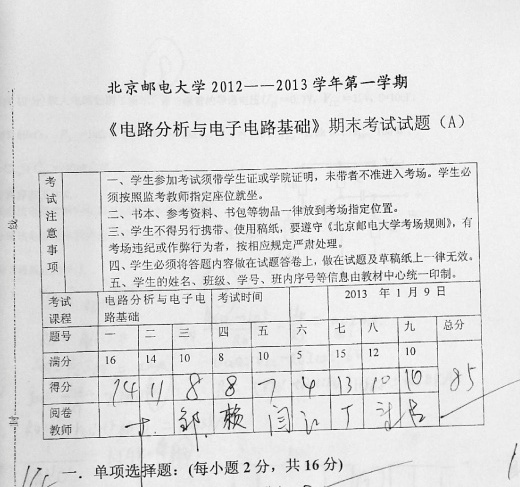 北京邮电大学2012——2013学年第一学期
《电路分析与电子电路基础》期末考试试题（A）
考试注意事项
一、学生参加考试须带学生证或学院证明，未带者不准进入考场。学生必
须按照监考教师指定座位就坐。
二、书本、参考资料、书包等物品一律放到考场指定位置。
三、学生不得另行携带、使用稿纸，要遵守《北京邮电大学考场规则》，有
考场违纪或作弊行为者，按相应规定严肃处理。
四、学生必须将答题内容做在试题答卷上，做在试题及草稿纸上一律无效。
五、学生的姓名、班级、学号、班内序号等信息由教材中心统一印制。
考试课程 电路分析与电子电路基础 考试时间 2013 年 1 月 9 日
题号 一 二 三 四 五 六 七 八 九 总分
满分 16 14 10 8 10 5 15 12 10
得分 14 11 8 8 7 4 13 10 10 85
阅卷教师 邹 赖 闫 江 丁
一．单项选择题：(每小题 2 分，共 16 分)